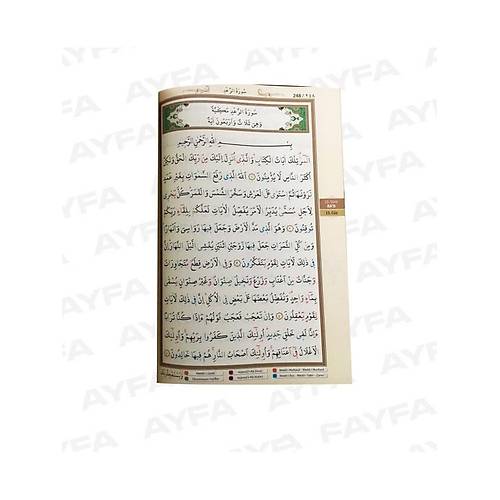 سُورَةُ الرَّعْدِ
248 / ٢٤٨
سُورَةُ الرَّعْدِ مَكِّيَّةٌ
وَهِيَ ثَلَاثٌ وَأَرْبَعُونَ اٰيَةً
بِسْمِ اللّٰهِ الرَّحْمٰنِ الرَّحِيمِ
الٓمٓرٰ تِلْكَ اٰيَاتُ الْكِتَابِ وَالَّذٓي اُنْزِلَ اِلَيْكَ مِنْ رَبِّكَ الْحَقُّ وَلٰكِنَّ
اَكْثَرَ النَّاسِ لَا يُؤْمِنُونَ ۞ اَللّٰهُ الَّذي رَفَعَ السَّمٰوَاتِ بِغَيْرِ عَمَدٍ
تَرَوْنَهَا ثُمَّ اسْتَوٰى عَلَى الْعَرْشِ وَسَخَّرَ الشَّمْسَ وَالْقَمَرَ كُلٌّ يَجْري
لِاَجَلٍ مُسَمًّى يُدَبِّرُ الْاَمْرَ يُفَصِّلُ الْاٰيَاتِ لَعَلَّكُمْ بِلِقَٓاءِ رَبِّكُمْ
تُوقِنُونَ ۞ وَهُوَ الَّذي مَدَّ الْاَرْضَ وَجَعَلَ فيهَا رَوَاسِيَ وَاَنْهَارًا
وَمِنْ كُلِّ الثَّمَرَاتِ جَعَلَ فيهَا زَوْجَيْنِ اثْنَيْنِ يُغْشِي الَّيْلَ النَّهَارَ اِنَّ
في ذٰلِكَ لَاٰيَاتٍ لِقَوْمٍ يَتَفَكَّرُونَ ۞ وَفِي الْاَرْضِ قِطَعٌ مُتَجَاوِرَاتٌ
وَجَنَّاتٌ مِنْ اَعْنَابٍ وَزَرْعٌ وَنَخيلٌ صِنْوَانٌ وَغَيْرُ صِنْوَانٍ يُسْقٰى
بِمَٓاءٍ وَاحِدٍ وَنُفَضِّلُ بَعْضَهَا عَلٰى بَعْضٍ فِي الْاُكُلِ اِنَّ في ذٰلِكَ لَاٰيَاتٍ
لِقَوْمٍ يَعْقِلُونَ ۞ وَاِنْ تَعْجَبْ فَعَجَبٌ قَوْلُهُمْ ءَاِذَا كُنَّا تُرَابًا
ءَاِنَّا لَفي خَلْقٍ جَديدٍ اُولٰٓئِكَ الَّذينَ كَفَرُوا بِرَبِّهِمْ وَاُولٰٓئِكَ
الْاَغْلَالُ في اَعْنَاقِهِمْ وَاُولٰٓئِكَ اَصْحَابُ النَّارِ هُمْ فيهَا خَالِدُونَ ۞
AYFA
FAYFA